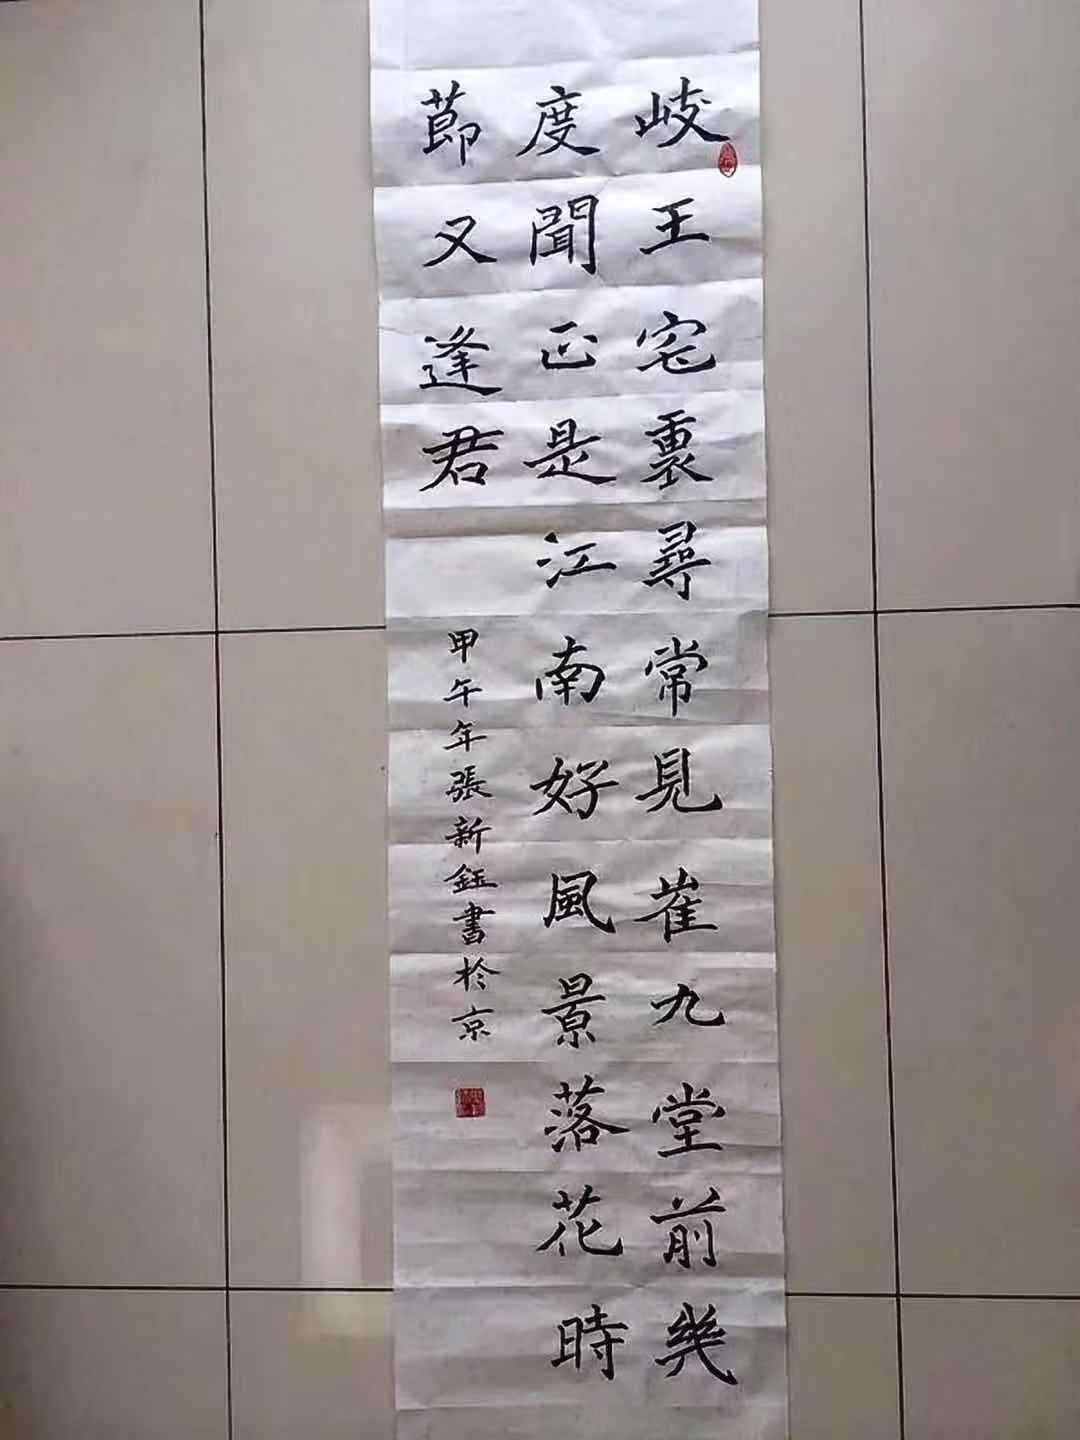 歧王宅裏尋常見崔九堂前幾
度聞正是江南好風景落花時
節又逢君
甲午年張新鈺書於京